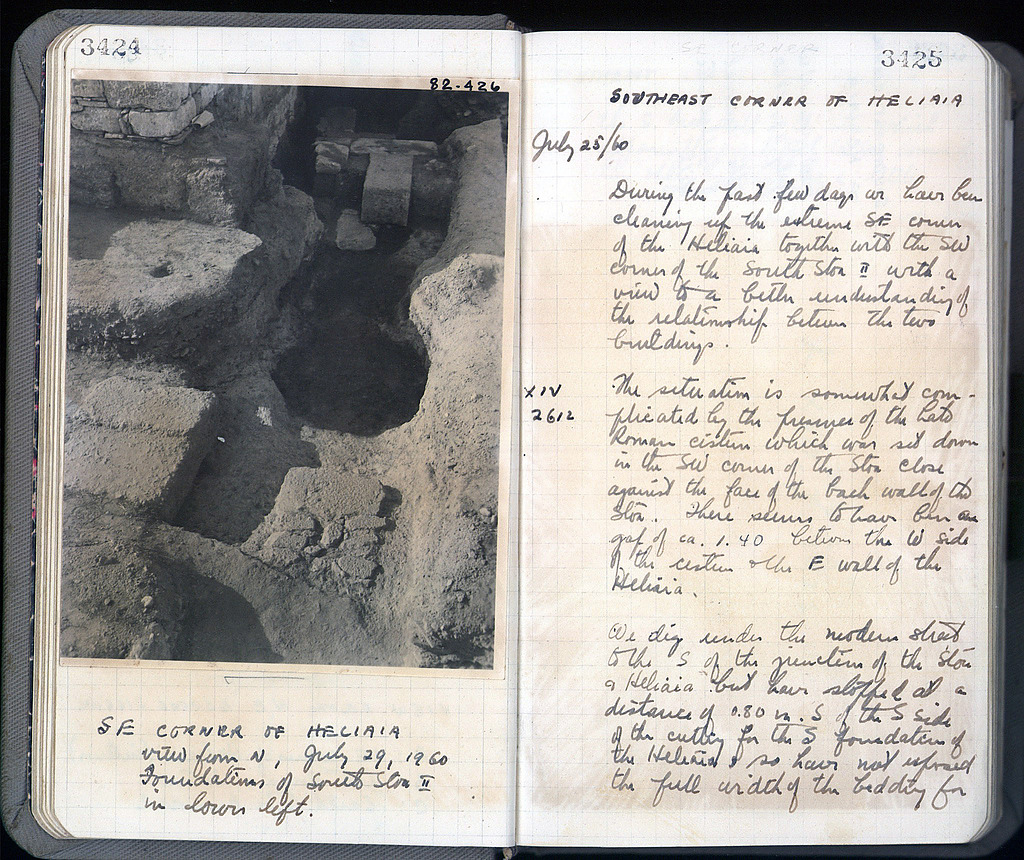 3424
82-426
SE CORNER OF HELIAIA
view from N, July 29, 1960
Foundations of South Stoa II
in lower left.
3425
SOUTHEAST CORNER OF HELIAIA
July 25/60
During the past few days we have been
cleaning up the extreme SE corner
of the Heliaia together with the SW
corner of the South Stoa II with a
view to a better understanding of
the relationship between the two
buildings.
XIV
2612
The situation is somewhat com-
plicated by the presence of the Late
Roman cistern which was set down
in the SW corner of the Stoa close
against the face of the back wall of the
Stoa. There seems to have been a
gap of ca. 1.40 between the W side
of the cistern & the E wall of the
Heliaia.
We dig under the modern street
to the S of the junction of the Stoa
& Heliaia but have stopped at a
distance of 0.80 m. S of the S side
of the cutting for the S foundation of
the Heliaia & so have not exposed
the full width of the bedding for